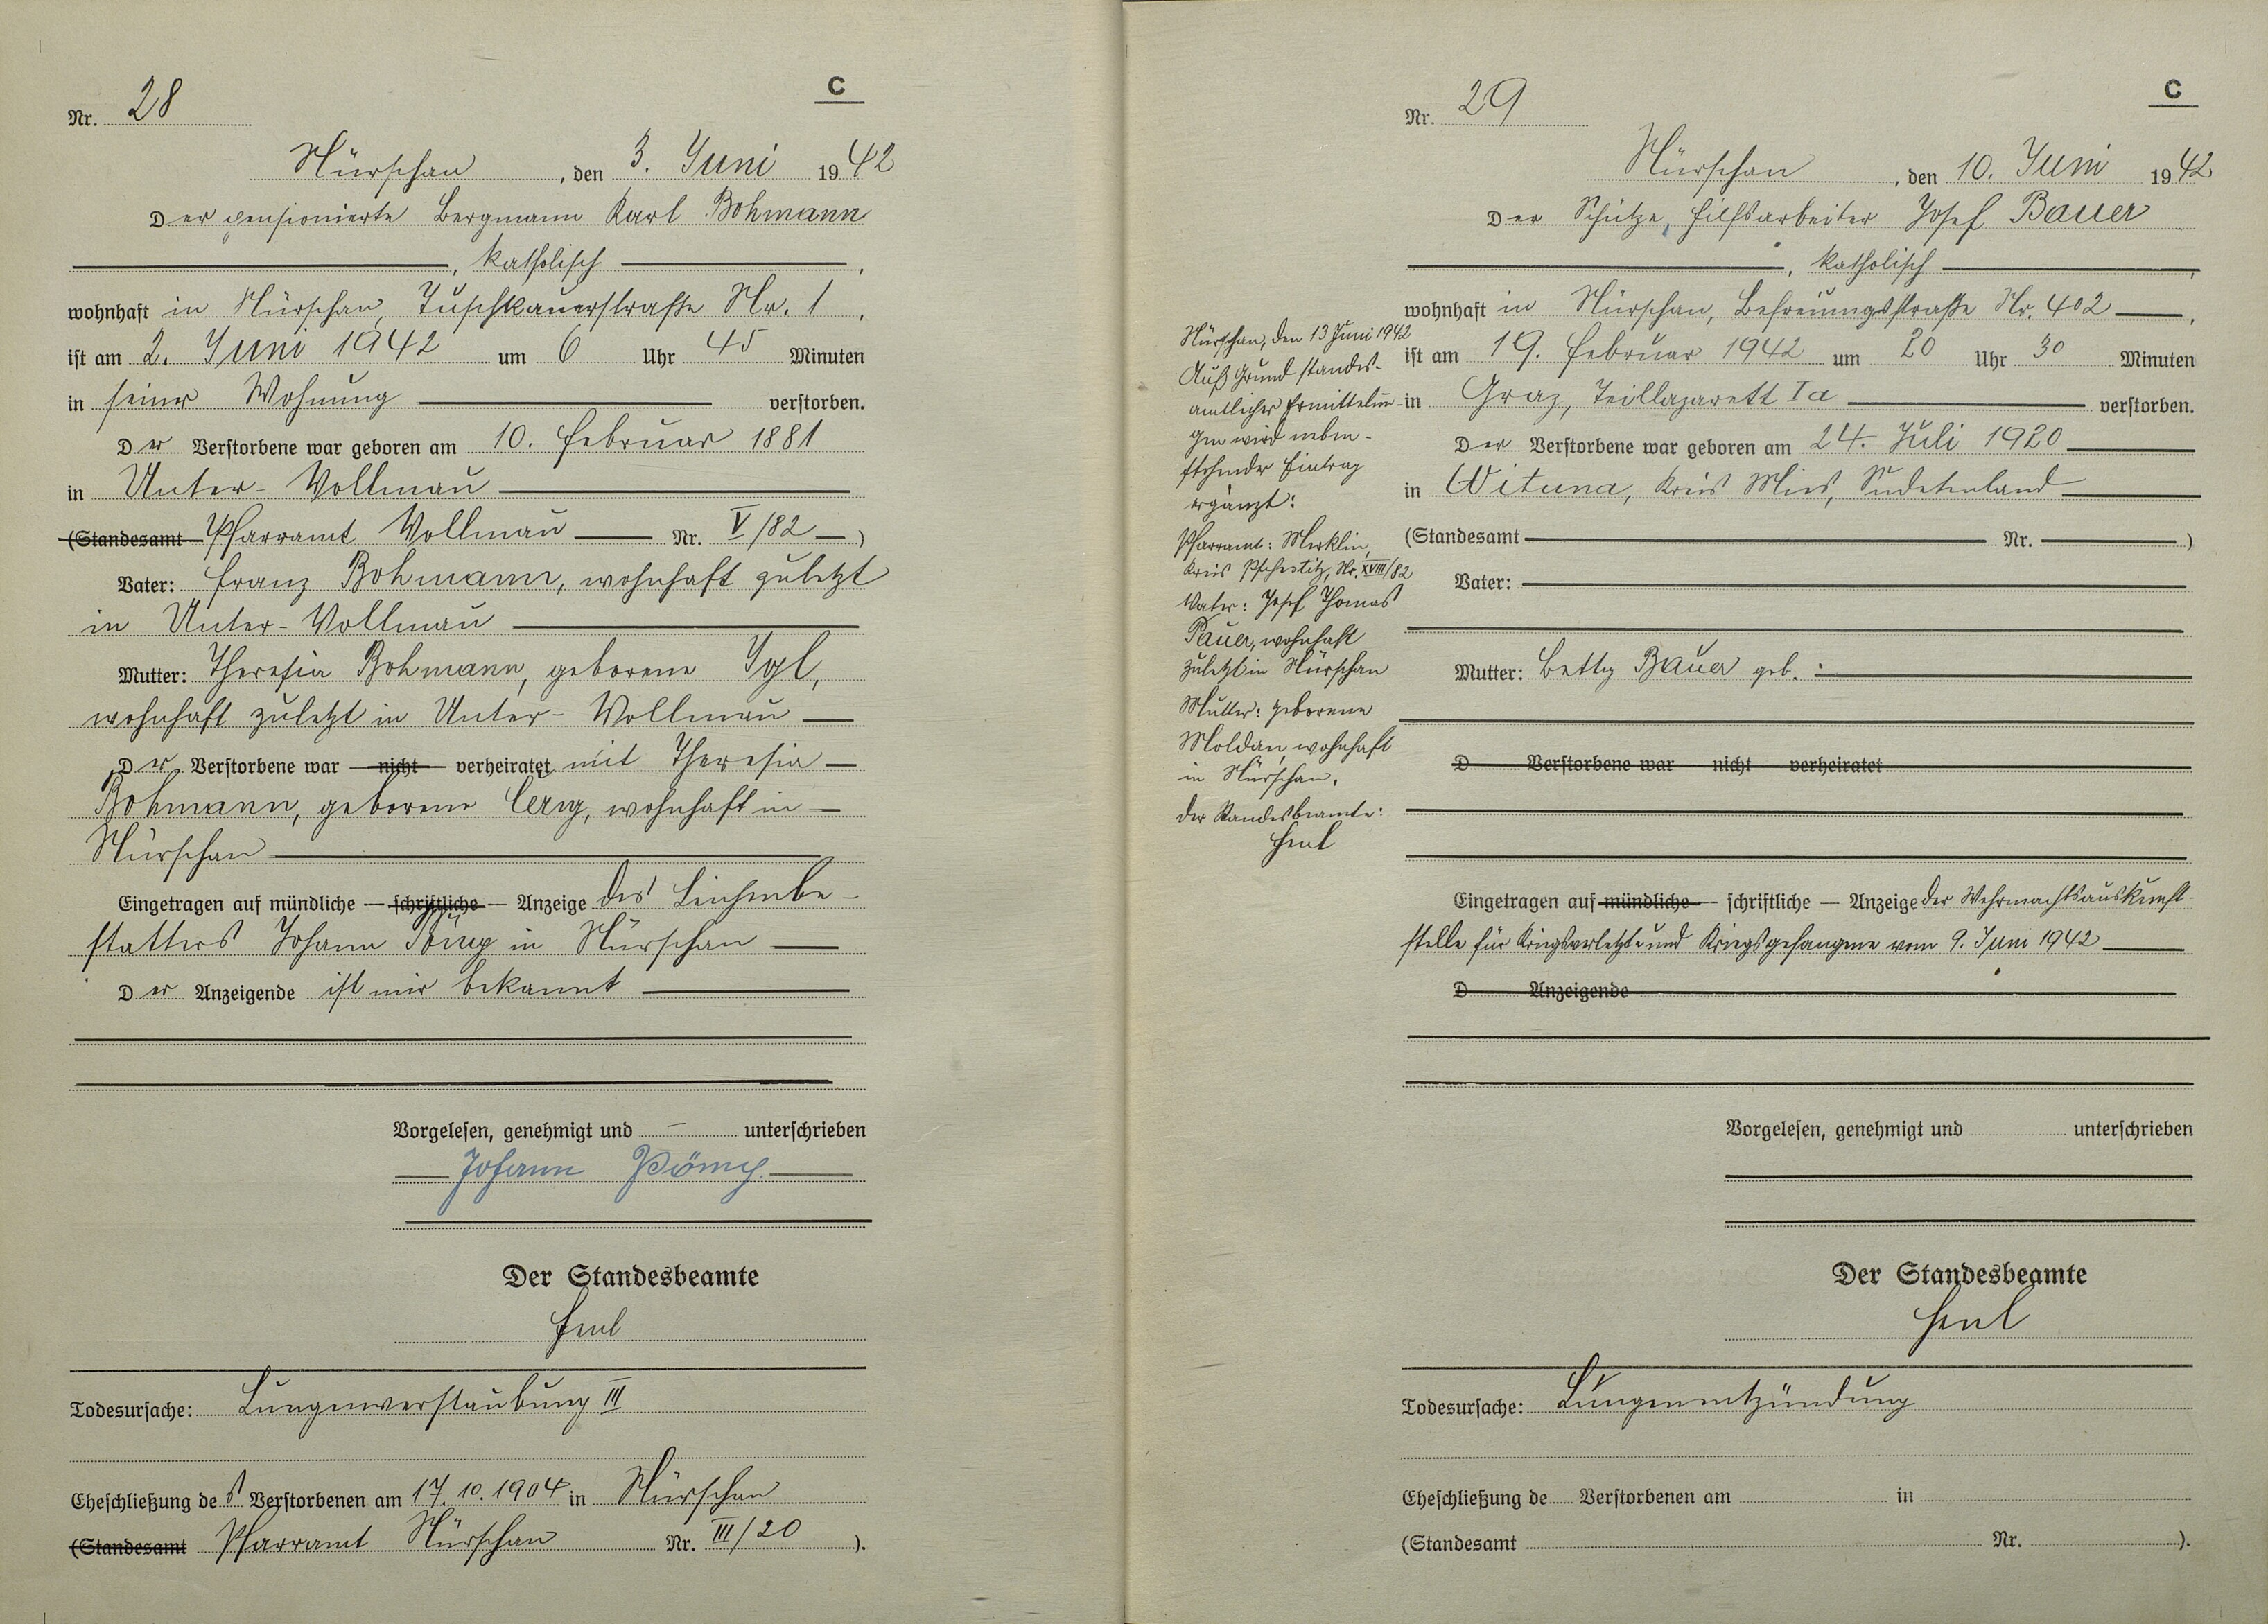 C
Nr. 28
Nürschan, den 3. Juni 1942
Der pensionierte Bergmann Karl Bohmann
, katholisch ,
wohnhaft in Nürschan, Tuschkauerstraße Nr. 1 ,
ist am 2. Juni 1942 um 6 Uhr 45 Minuten
in seiner Wohnung verstorben.
Der Verstorbene war geboren am 10. Februar 1881
in Unter-Vollmau
(Standesamt Pfarramt Vollmau Nr. V/82 )
Vater: Franz Bohmann, wohnhaft zuletzt
in Unter-Vollmau
Mutter: Theresia Bohmann, geborene Igl,
wohnhaft zuletzt in Unter-Vollmau
Der Verstorbene war — nicht — verheiratet mit Theresia
Bohmann, geborene , wohnhaft in
Nürschan
Eingetragen auf mündliche — schriftliche — Anzeige des Leichenbe-
statters Johann in Nürschan
Der Anzeigende ist mir bekannt
Vorgelesen, genehmigt und — unterschrieben
Johann
Der Standesbeamte
Henl
Todesursache: Lungenverstaubung III
Eheschließung des Verstorbenen am 17.10.1904 in Nürschan
(Standesamt Pfarramt Nürschan Nr. III/20 ).
C
Nr. 29
Nürschan, den 10. Juni 1942
Der Schütze, Hilfsarbeiter Josef Bauer
, katholisch ,
wohnhaft in Nürschan, Befreiungsstraße Nr. 402 ,
ist am 19. Februar 1942 um 20 Uhr 30 Minuten
in Graz, Teillazarett Ia verstorben.
Der Verstorbene war geboren am 24. Juli 1920
in Wituna, Kreis Mies, Sudetenland
(Standesamt Nr. )
Vater:
Mutter: Betty Bauer geb.:
D Verstorbene war — nicht — verheiratet
Eingetragen auf mündliche — schriftliche — Anzeige der Wehrmachtsauskunft-
stelle für Kriegsverletzte und Kriegsgefangene vom 9. Juni 1942
D Anzeigende
Vorgelesen, genehmigt und unterschrieben
Der Standesbeamte
Henl
Todesursache: Lungenentzündung
Eheschließung de Verstorbenen am in
(Standesamt Nr. ).
Nürschan, den 13 Juni 1942
Auf Grund standes-
amtlicher Ermittelun-
gen wird neben-
stehender Eintrag
ergänzt:
Pfarramt: Merklin,
Kreis Pschestitz, Nr. XVIII/82
Vater: Josef Thomas
Pauer, wohnhaft
zuletzt in Nürschan
Mutter: geborene
Moldan, wohnhaft
in Nürschan.
Der Standesbeamte:
Henl